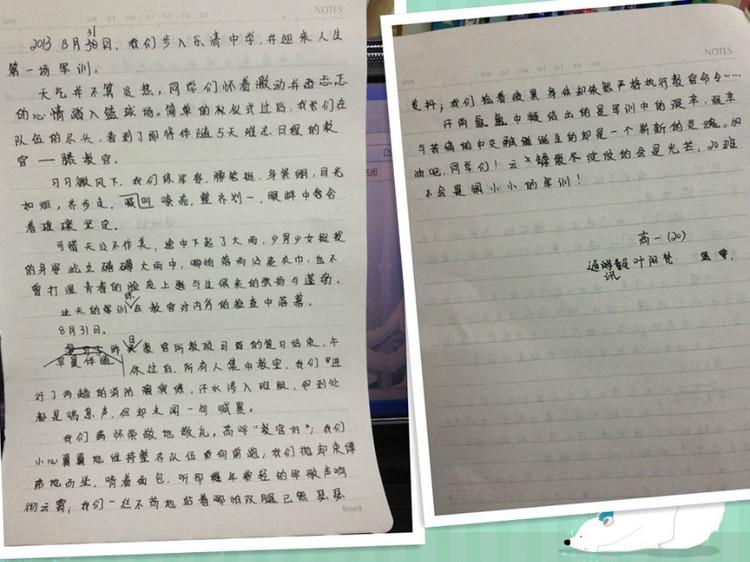 NOTES
31
2013 8月30日，我们步入乐清中学，并迎来人生
第一场军训。
天气并不算炎热，同学们怀着激动并忐忑
的心情踏入篮球场。简单的仪式过后，我们在
队伍的尽头，看到了即将伴随5天难忘日程的教
官——滕教官。
习习微风下，我们练军容，腰笔挺，身紧绷，目光
如炬，齐步走，喊叫嘹亮，整齐划一，眼眸中含
着璀璨坚定。
可惜天公不作美，途中下起了大雨，少男少女挺拔
的身姿屹立磅礴大雨中，哪怕落雨沾是衣巾，也不
曾打湿青春的脸庞上与生俱来的飞扬与蓬勃。
这天的军训在教官对内务的检查中落幕。
8月31日。
早晨伴随
教官所教授习的复习结束，午
休过后，所有人集中教室，我们进
行了两趟的消防演练，汗水浸入班服，包到处
都是喘息声，但却未闻一句喊累。
我们满怀崇敬地敬礼，高呼“教官好”；我们
小心翼翼地维持整齐队伍走向前跑；我们抛却束缚
席地而坐，啃着面包，听那年轻的军歌声响
彻云霄；我们一丝不苟地站着哪怕双腿已经瑟瑟
NOTES
发抖；我们拖着疲累身体却依然严格执行教官命令……
汗雨氤氲中凝结出的是军训中的艰辛，艰辛
与苦痛的中交融诞生的却是一个崭新的灵魂。加
油吧，同学们！云之镶散尽绽放的会是光芒，20班
不会是惧小小的军训！
高一(20)
通讯员 叶阳梵